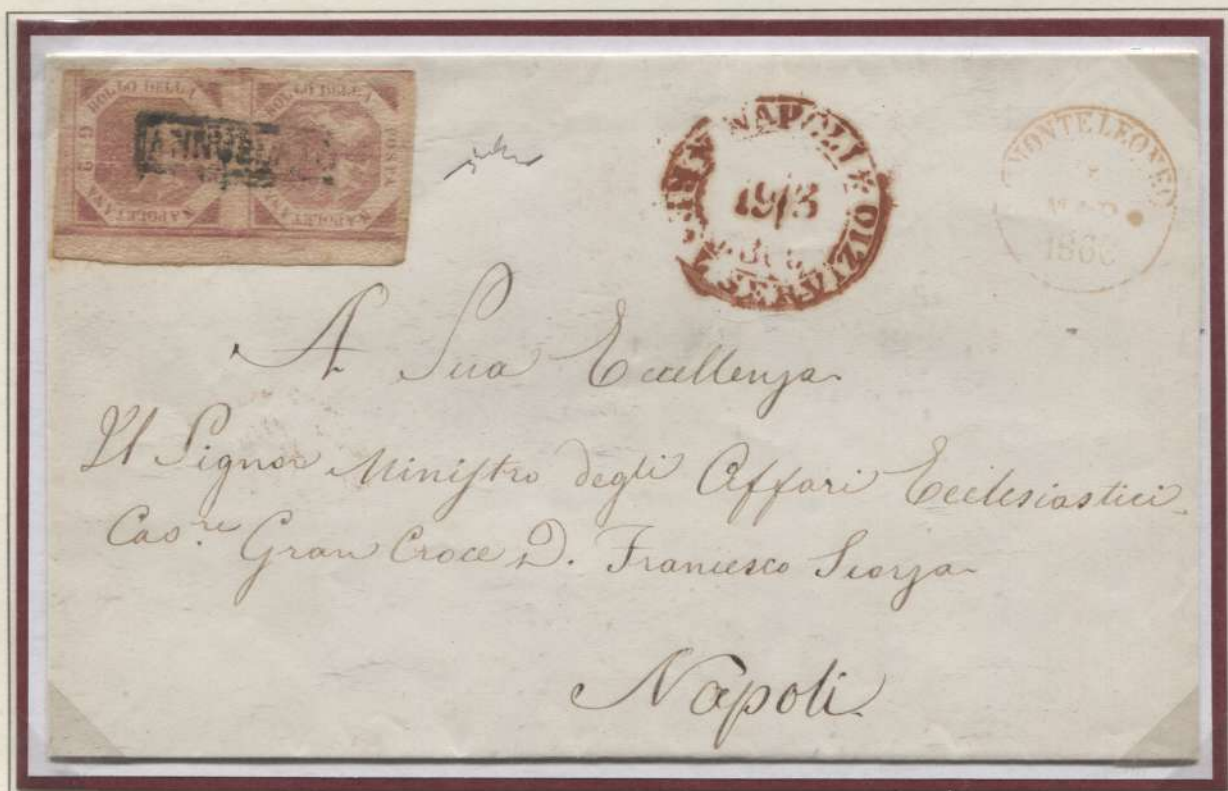 BOLLO DELLA POSTA NAPOLETANA G. 2
BOLLO DELLA POSTA NAPOLETANA
ANNULLATO
NAPOLI
19/3
MONTELEONE
1860
A Sua Eccellenza
Il Signor Ministro degli Affari Ecclesiastici
Cav.re Gran Croce D. Francesco Scorza
Napoli